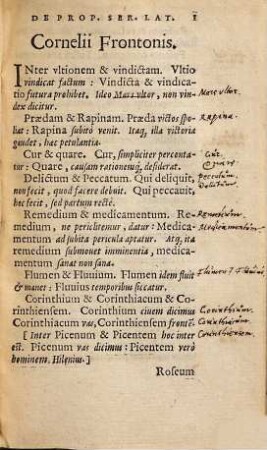 DE PROP. SER. LAT. 1
Cornelii Frontonis.
INter vltionem & vindictam. Vltio
vindicat factum: Vindicta & vindica-
tio futura prohibet. Ideo Mars vltor, non vin-
dex dicitur.
Mars ultor.
Prædam & Rapinam. Præda victos spo-
liat: Rapina subitò venit. Itaq, illa victoria
gaudet, hæc petulantia.
Rapina.
Cur & quare. Cur, simpliciter percenta-
tur: Quare, causam rationemq, desiderat.
Cur
Quare
Delictum & Peccatum. Qui deliquit,
non fecit, quod facere debuit. Qui peccauit,
hoc fecit, sed parum rectè.
Peccatum.
Delictum.
Remedium & medicamentum. Re-
medium, ne periclitemur, datur: Medica-
mentum ad subita pericula aptatur. Atq, ita
remedium submouet imminentia, medica-
mentum sanat non sana.
Remedium.
Medicamentum.
Flumen & Fluuium. Flumen idem fluit
& manet: Fluuius temporibus siccatur.
Corinthium & Corinthiacum & Co-
rinthiensem. Corinthium ciuem dicimus
Corinthiacum vas, Corinthiensem frontẽ.
Corinthium.
Corinthiacum.
Corinthiensem.
[Inter Picenum & Picentem hoc inter
est. Picenum vas dicimus: Picentem verò
hominem. Hilenius.]
Roseum